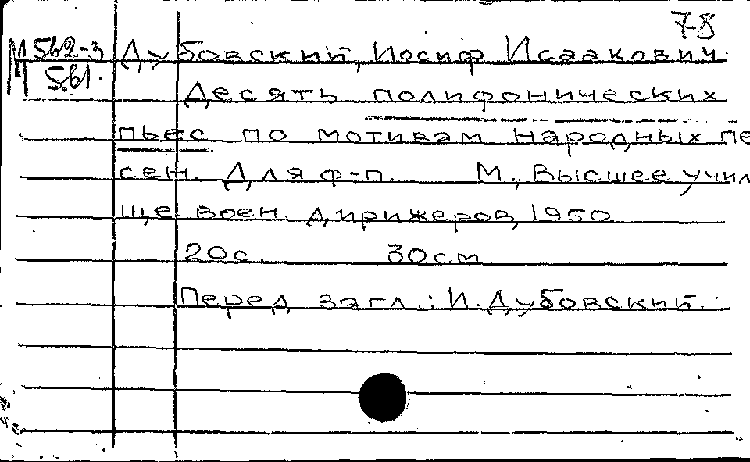 78
М 562-3 Дубовский, Иосиф Исаакович.
561.
Десять полифонических
пьес по мотивам народных пе
сен. Для ф-п. М., Высшее учил
ще воен. дирижеров, 1950
20с. 30см
Перед загл.: И. Дубовский.